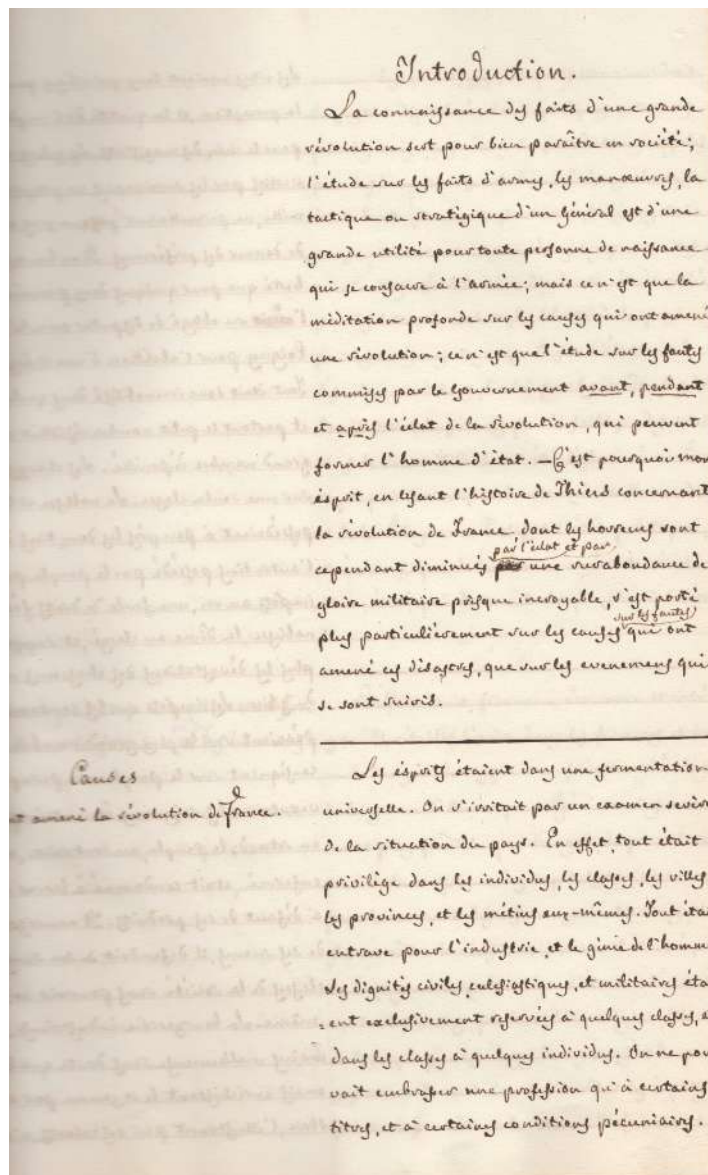 Introduction.
La connaissance des faits d'une grande
révolution sert pour bien paraître en société;
l'étude sur les faits d'armes, les manœuvres, la
tactique ou stratégique d'un Général est d'une
grande utilité pour toute personne de naissance
qui se consacre à l'armée; mais ce n'est que la
méditation profonde sur les causes qui ont amené
une révolution; ce n'est que l'étude sur les fautes
commises par le Gouvernement avant, pendant
et après l'éclat de la révolution, qui peuvent
former l'homme d'état. — C'est pourquoi mon
esprit, en lisant l'histoire de Thiers concernant
la révolution de France, dont les horreurs sont
par l'éclat et par
cependant diminués une surabondance de
gloire militaire presque incroyable, s'est porté
sur les fautes
plus particulièrement sur les causes que ont
amené ces désastres, que sur les evenemens qui
se sont suivis.
Causes
nt amené la révolution de France.
Les ésprits étaient dans une fermentation
universelle. On s'irritait par un examen sevère
de la situation du pays. En effet, tout était
privilège dans les individus, les classes, les villes
les provinces, et les métiers eux-mêmes. Tout étai
entrave pour l'industrie, et le génie de l'homme
Les dignités civiles, eclesiastiques, et militaires éta
=ent exclusivement reservées à quelques classes, e
dans les classes à quelques individus. On ne pou
vait embrasser une profession qu'à certains
titres, et à certaines conditions pécuniaires.